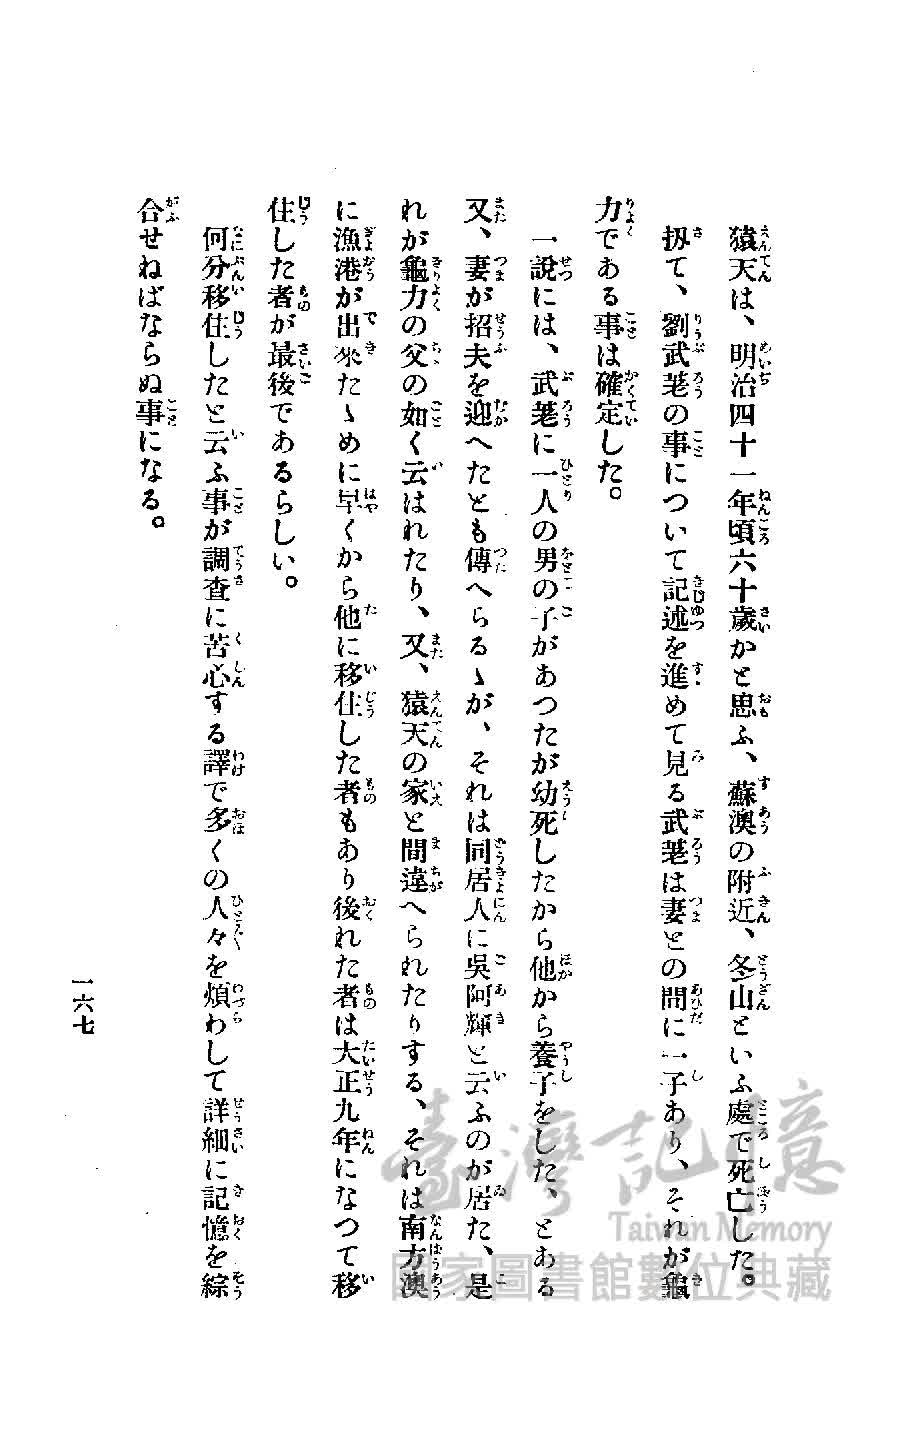 猿天は、明治四十一年頃六十歲かと思ふ、蘇澳の附近、冬山といふ處で死亡した。
扨て、劉武荖の事について記述を進めて見る武荖は妻との間に一子あり、それが龜
力である事は確定した。
一說には、武荖に一人の男の子があつたが幼死したから他から養子をした、とある
又、妻が招夫を迎へたとも傳へらるゝが、それは同居人に吳阿輝と云ふのが居た、是
れが龜力の父の如く云はれたり、又、猿天の家と間違へられたりする、それは南方澳
に漁港が出來たゝめに早くから他に移住した者もあり後れた者は大正九年になつて移
住した者が最後であるらしい。
何分移住したと云ふ事が調査に苦心する譯で多くの人々を煩わして詳細に記憶を綜
合せねばならぬ事になる。
一六七
臺灣記憶
Taiwan Memory
國家圖書館數位典藏